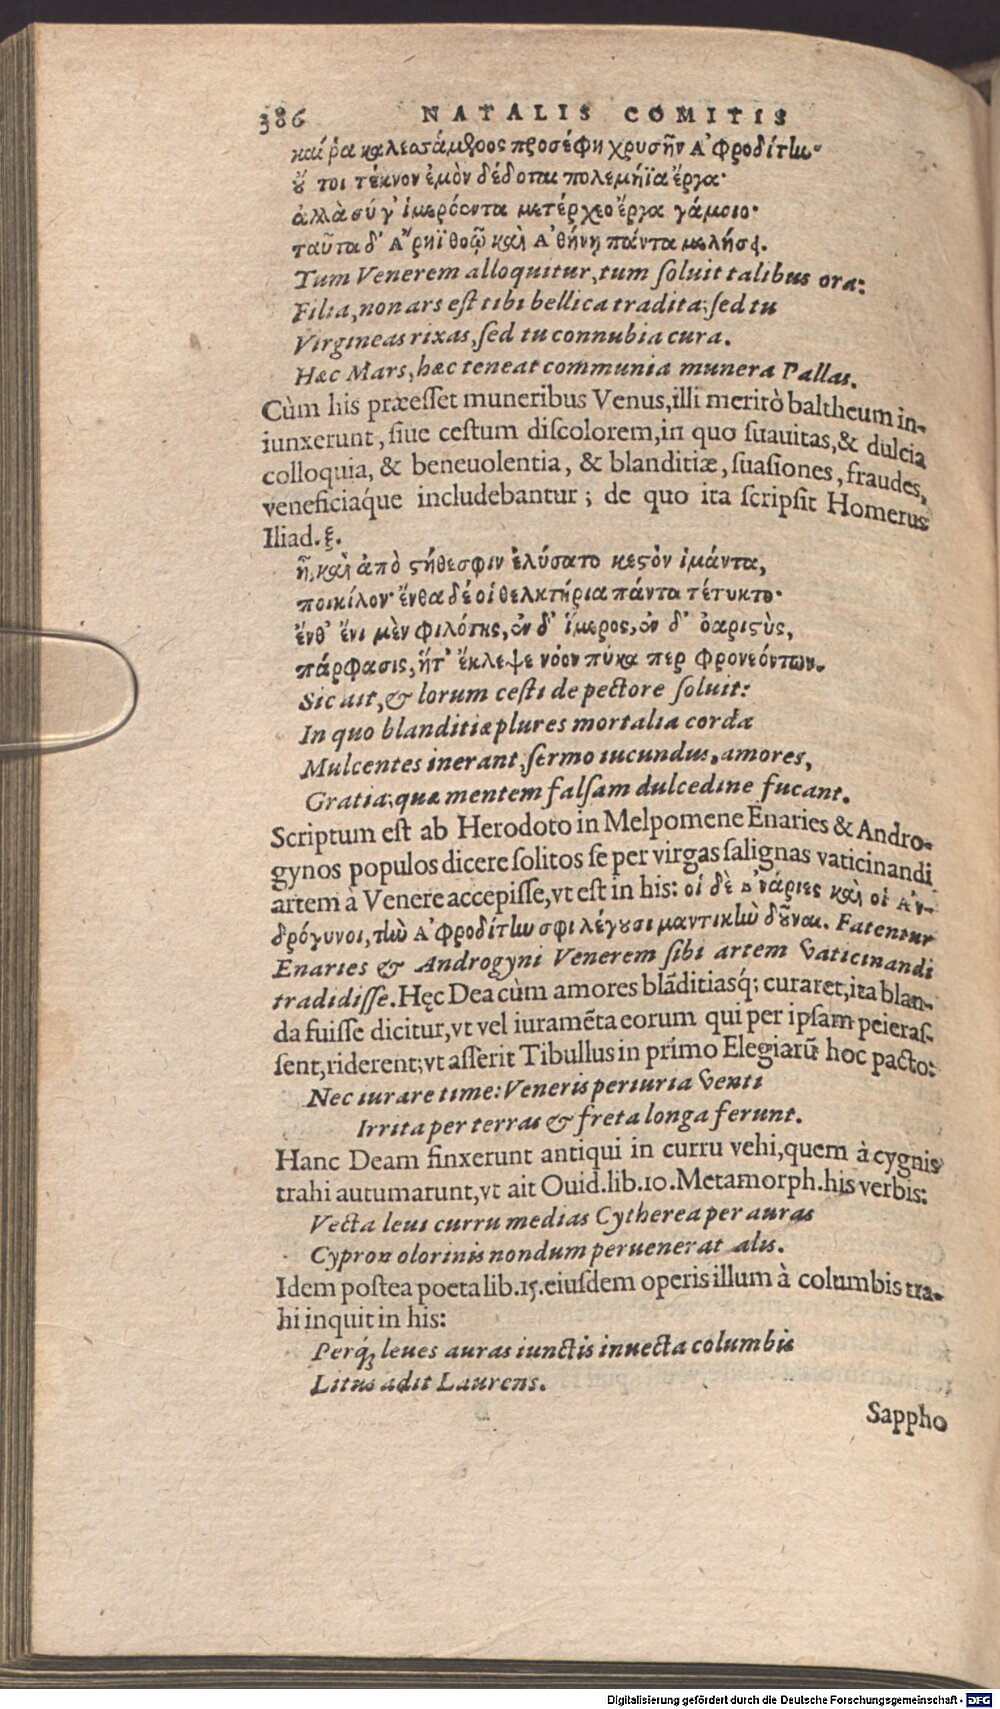 386 NATALIS COMITIS
καί ῥα καλεσσάμενος προσέφη χρυσῆν Ἀφροδίτην·
οὔ τοι τέκνον ἐμὸν δέδοται πολεμήϊα ἔργα·
ἀλλὰ σύγ' ἱμερόεντα μετέρχεο ἔργα γάμοιο·
ταῦτα δ' Ἄρηϊ θοῷ καὶ Ἀθήνῃ πάντα μελήσει.
Tum Venerem alloquitur, tum soluit talibus ora:
Filia, non ars est tibi bellica tradita; sed tu
Virgineas rixas, sed tu connubia cura.
Hæc Mars, hæc teneat communia munera Pallas.
Cùm his præesset muneribus Venus, illi meritò baltheum in-
iunxerunt, siue cestum discolorem, in quo suauitas, & dulcia
colloquia, & beneuolentia, & blanditiæ, suasiones, fraudes,
veneficiáque includebantur; de quo ita scripsit Homerus
Iliad. ξ.
ἦ, καὶ ἀπὸ στήθεσφιν ἐλύσατο κεστὸν ἱμάντα,
ποικίλον· ἔνθα δέ οἱ θελκτήρια πάντα τέτυκτο·
ἔνθ' ἔνι μὲν φιλότης, ἐν δ' ἵμερος, ἐν δ' ὀαριστὺς,
πάρφασις, ἥτ' ἔκλεψε νόον πύκα περ φρονεόντων.
Sic ait, & lorum cesti de pectore soluit:
In quo blanditiæ plures mortalia corda
Mulcentes inerant, sermo iucundus, amores,
Gratia; quæ mentem falsam dulcedine fucant.
Scriptum est ab Herodoto in Melpomene Enaries & Andro-
gynos populos dicere solitos se per virgas salignas vaticinandi
artem à Venere accepisse, vt est in his: οἱ δὲ Ἐνάριες καὶ οἱ Ἀν-
δρόγυνοι, τὴν Ἀφροδίτην σφι λέγουσι μαντικὴν δοῦναι. Fatentur
Enaries & Androgyni Venerem sibi artem vaticinandi
tradidisse. Hęc Dea cùm amores blāditiasq́; curaret, ita blan-
da fuisse dicitur, vt vel iuramēta eorum qui per ipsam peieras-
sent, riderent; vt asserit Tibullus in primo Elegiarũ hoc pacto:
Nec iurare time: Veneris periuria venti
Irrita per terras & freta longa ferunt.
Hanc Deam finxerunt antiqui in curru vehi, quem à cygnis
trahi autumarunt, vt ait Ouid. lib. 10. Metamorph. his verbis:
Vecta leui curru medias Cytherea per auras
Cypron olorinis nondum peruenerat alis.
Idem postea poeta lib. 15. eiusdem operis illum à columbis tra-
hi inquit in his:
Perq́; leues auras iunctis inuecta columbis
Litus adit Laurens.
Sappho
Digitalisierung gefördert durch die Deutsche Forschungsgemeinschaft - DFG